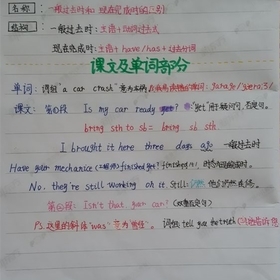 名称: 一般过去时和现在完成时的区别
结构: 一般过去时: 主语+动词过去式
现在完成时: 主语+have/has+过去分词
课文及单词部分
单词: 词组"a car crash"意为车祸
课文: 第四段 Is my car ready yet? "yet"用于疑问句,否定句。
bring sth to sb = bring sb sth
I brought it here three days ago 一般过去时
Have your mechanics finished yet?
No, they're still working on it. still:
Isn't that your car?
PS.这里的斜体"was"意为"曾经". 词组 tell you the truth